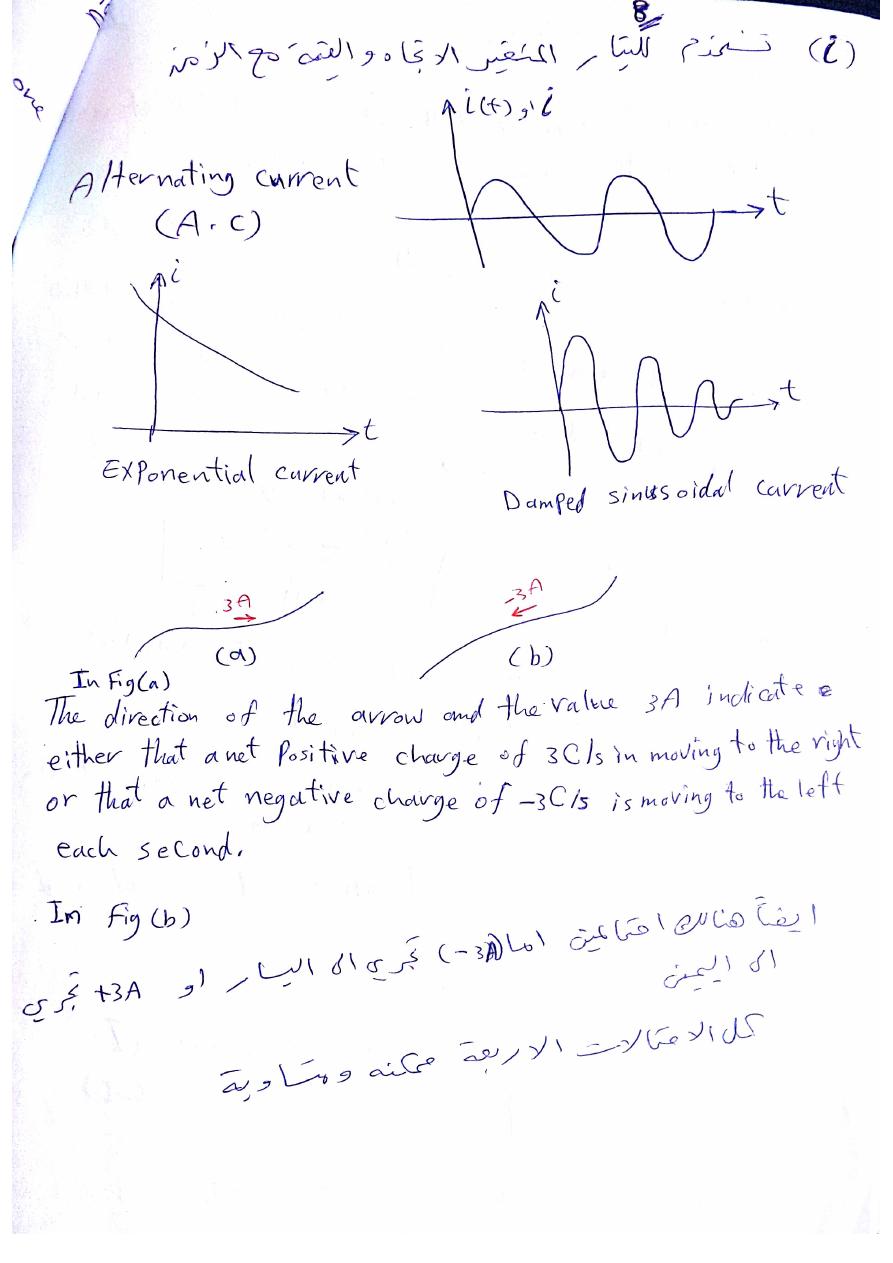 8
(i) تستخدم للتيار المتغير الاتجاه والقيمة مع الزمن
one
i(t) او i
t
Alternating current
(A.C)
i
t
Exponential current
i
t
Damped sinusoidal current
3A
(a)
-3A
(b)
In Fig(a)
The direction of the arrow and the value 3A indicate
either that a net Positive charge of 3C/s in moving to the right
or that a net negative charge of -3C/s is moving to the left
each second.
In Fig (b)
ايضاً هنالك احتمالين اما (-3A) تجري الى اليسار او +3A تجري
الى اليمين
كل الاحتمالات الاربعة ممكنه ومتساوية